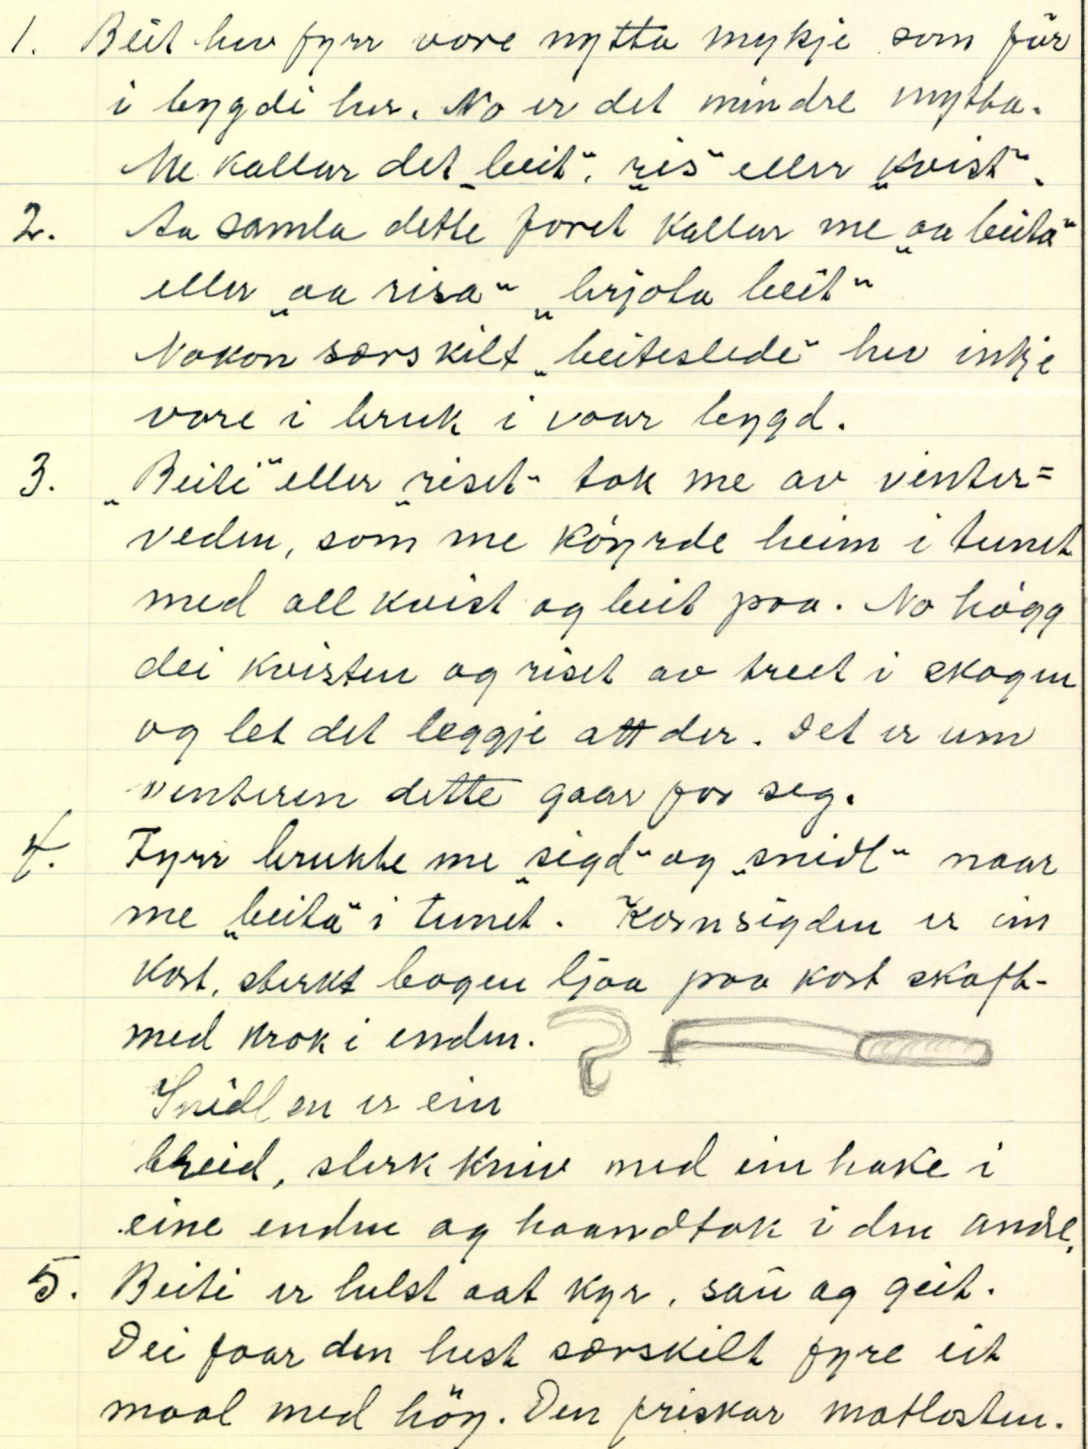 1. Beit hev fyrr vore nytta mykje som fôr
i bygdi her. No er det mindre nytta.
Me kallar det „beit“, „ris“ eller „kvist“.
2. Aa samla dette foret kallar me „aa beita“
eller „aa risa“ „brjota beit“
Nokon særskilt „beiteslede“ hev inkje
vore i bruk i vaar bygd.
3. „Beiti“ eller „riset“ tok me av venter=
veden, som me köyrde heim i tunet
med all kvist og beit paa. No högg
dei kvisten og riset av treet i skogen
og let det leggje att der. Det er um
venteren dette gaar for seg.
4. Fyrr brukte me „sigd“ og „snidl“ naar
me „beita“ i tunet. Kornsigden er ein
kort, sterkt bogen ljaa paa kort skaft-
med krok i enden.
Snidlen er ein
breid, sterk kniv med ein hake i
eine enden og haandtak i den andre.
5. Beiti er helst aat kyr, sau og geit.
Dei faar den helst særskilt fyre eit
maal med höy. Den friskar matlosten.